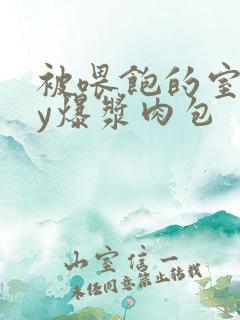 被喂饱的室
y爆浆肉包
山室信一
未经同意禁止转载